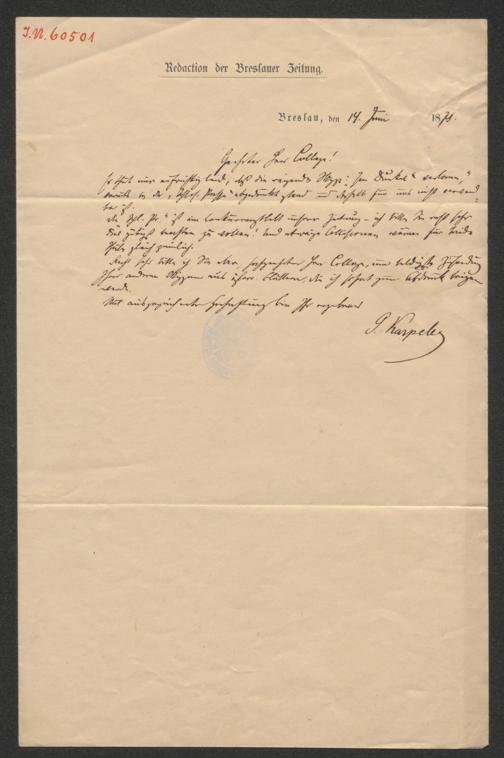 I.N. 60501
Redaction der Breslauer Zeitung.
Breslau, den 14. Juni 1871.
Geehrter Herr College!
Es thut mir aufrichtig leid, daß die reizende Skizze: „Im Dunkel verloren"
bereits in der „Schles. Presse" abgedruckt stand und deshalb für uns nicht verwend-
bar ist.
Die „Schl. Pr." ist ein Concurrenzblatt unserer Zeitung – ich bitte Sie recht sehr
dies gütigst beachten zu wollen! und etwaige Collisionen wären für beide
Theile gleich peinlich.
Recht sehr bitte ich Sie aber, hochgeehrter Herr College, um baldigste Zusendung
Ihrer anderen Skizzen aus Ihrer, die ich sofort zum Abdruck bringen
werde.
Mit ausgezeichneter Hochachtung bin Ihr ergebener
G. Karpeles